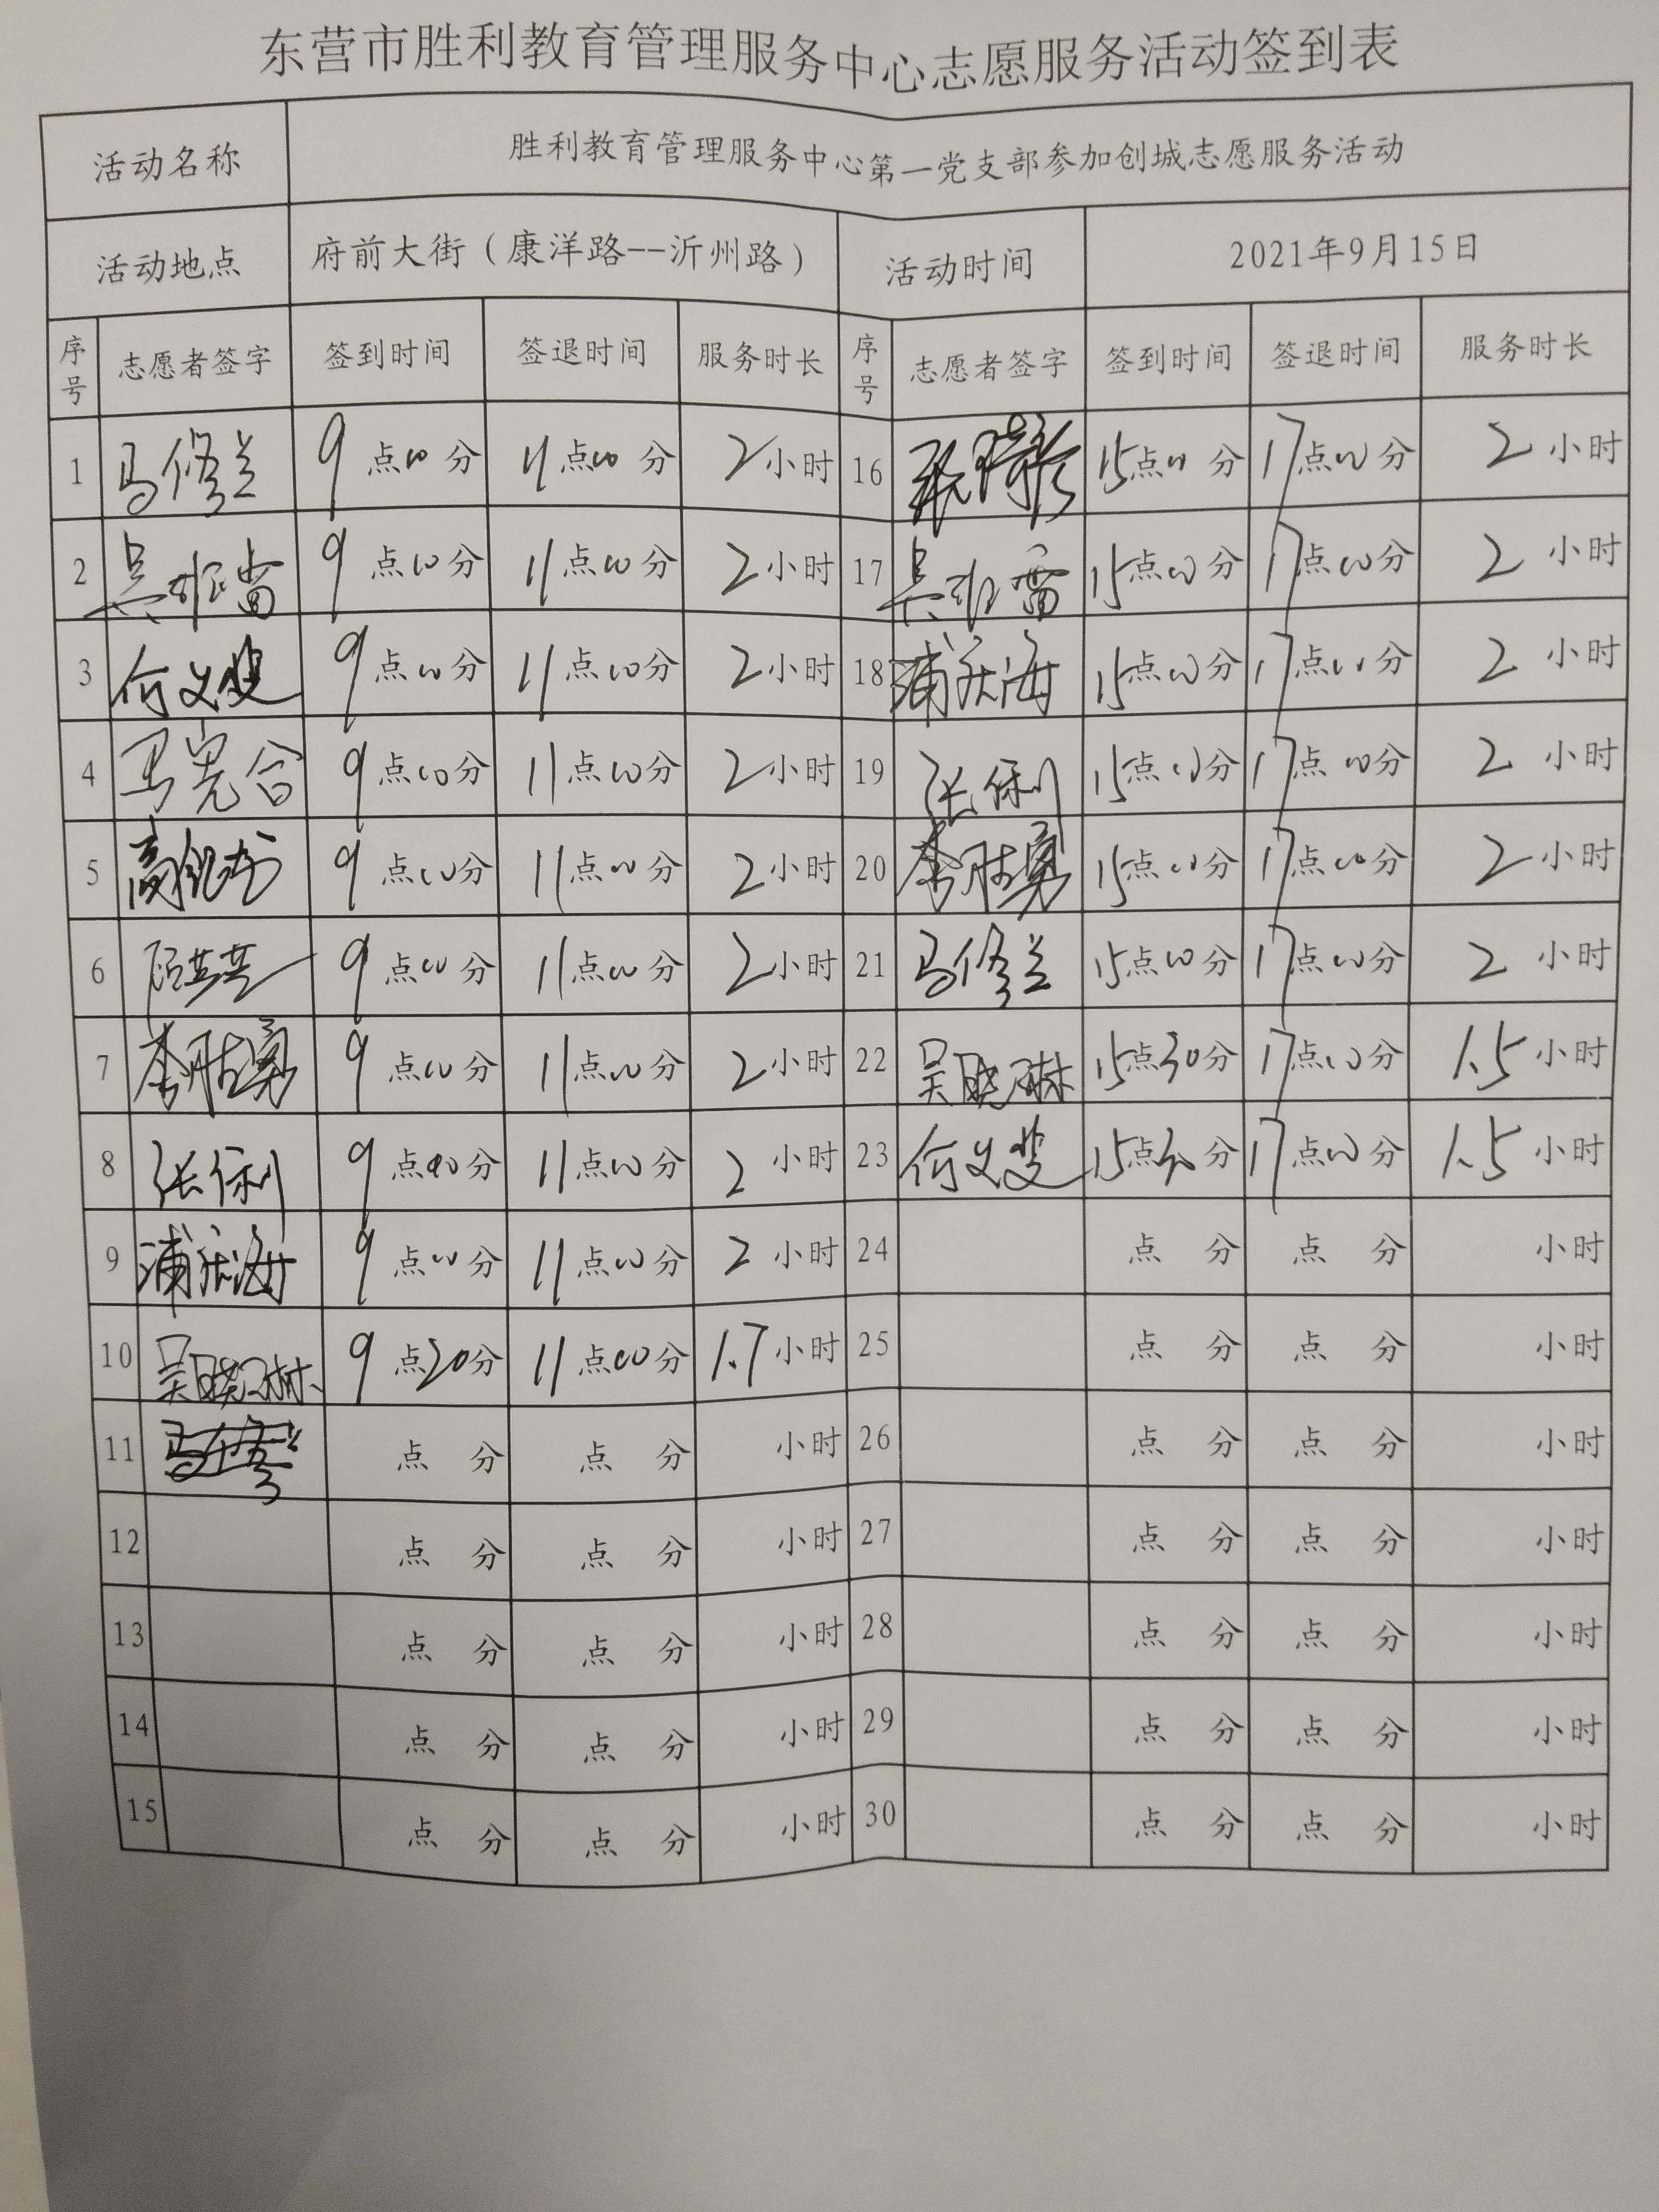 东营市胜利教育管理服务中心志愿服务活动签到表
活动名称 胜利教育管理服务中心第一党支部参加创城志愿服务活动
活动地点 府前大街（康洋路--沂州路） 活动时间 2021年9月15日
序号 志愿者签字 签到时间 签退时间 服务时长 序号 志愿者签字 签到时间 签退时间 服务时长
1 马修兰 9点00分 11点00分 2小时 16 15点00分 17点00分 2小时
2 9点00分 11点00分 2小时 17 15点00分 17点00分 2小时
3 何文斐 9点00分 11点00分 2小时 18 浦庆海 15点00分 17点00分 2小时
4 9点00分 11点00分 2小时 19 张保利 15点00分 17点00分 2小时
5 9点00分 11点00分 2小时 20 李胜勇 15点00分 17点00分 2小时
6 9点00分 11点00分 2小时 21 马修兰 15点00分 17点00分 2小时
7 李胜勇 9点00分 11点00分 2小时 22 吴晓琳 15点30分 17点00分 1.5小时
8 张保利 9点00分 11点00分 2小时 23 何文斐 15点30分 17点00分 1.5小时
9 浦庆海 9点00分 11点00分 2小时 24 点 分 点 分 小时
10 吴晓琳 9点20分 11点00分 1.7小时 25 点 分 点 分 小时
11 点 分 点 分 小时 26 点 分 点 分 小时
12 点 分 点 分 小时 27 点 分 点 分 小时
13 点 分 点 分 小时 28 点 分 点 分 小时
14 点 分 点 分 小时 29 点 分 点 分 小时
15 点 分 点 分 小时 30 点 分 点 分 小时